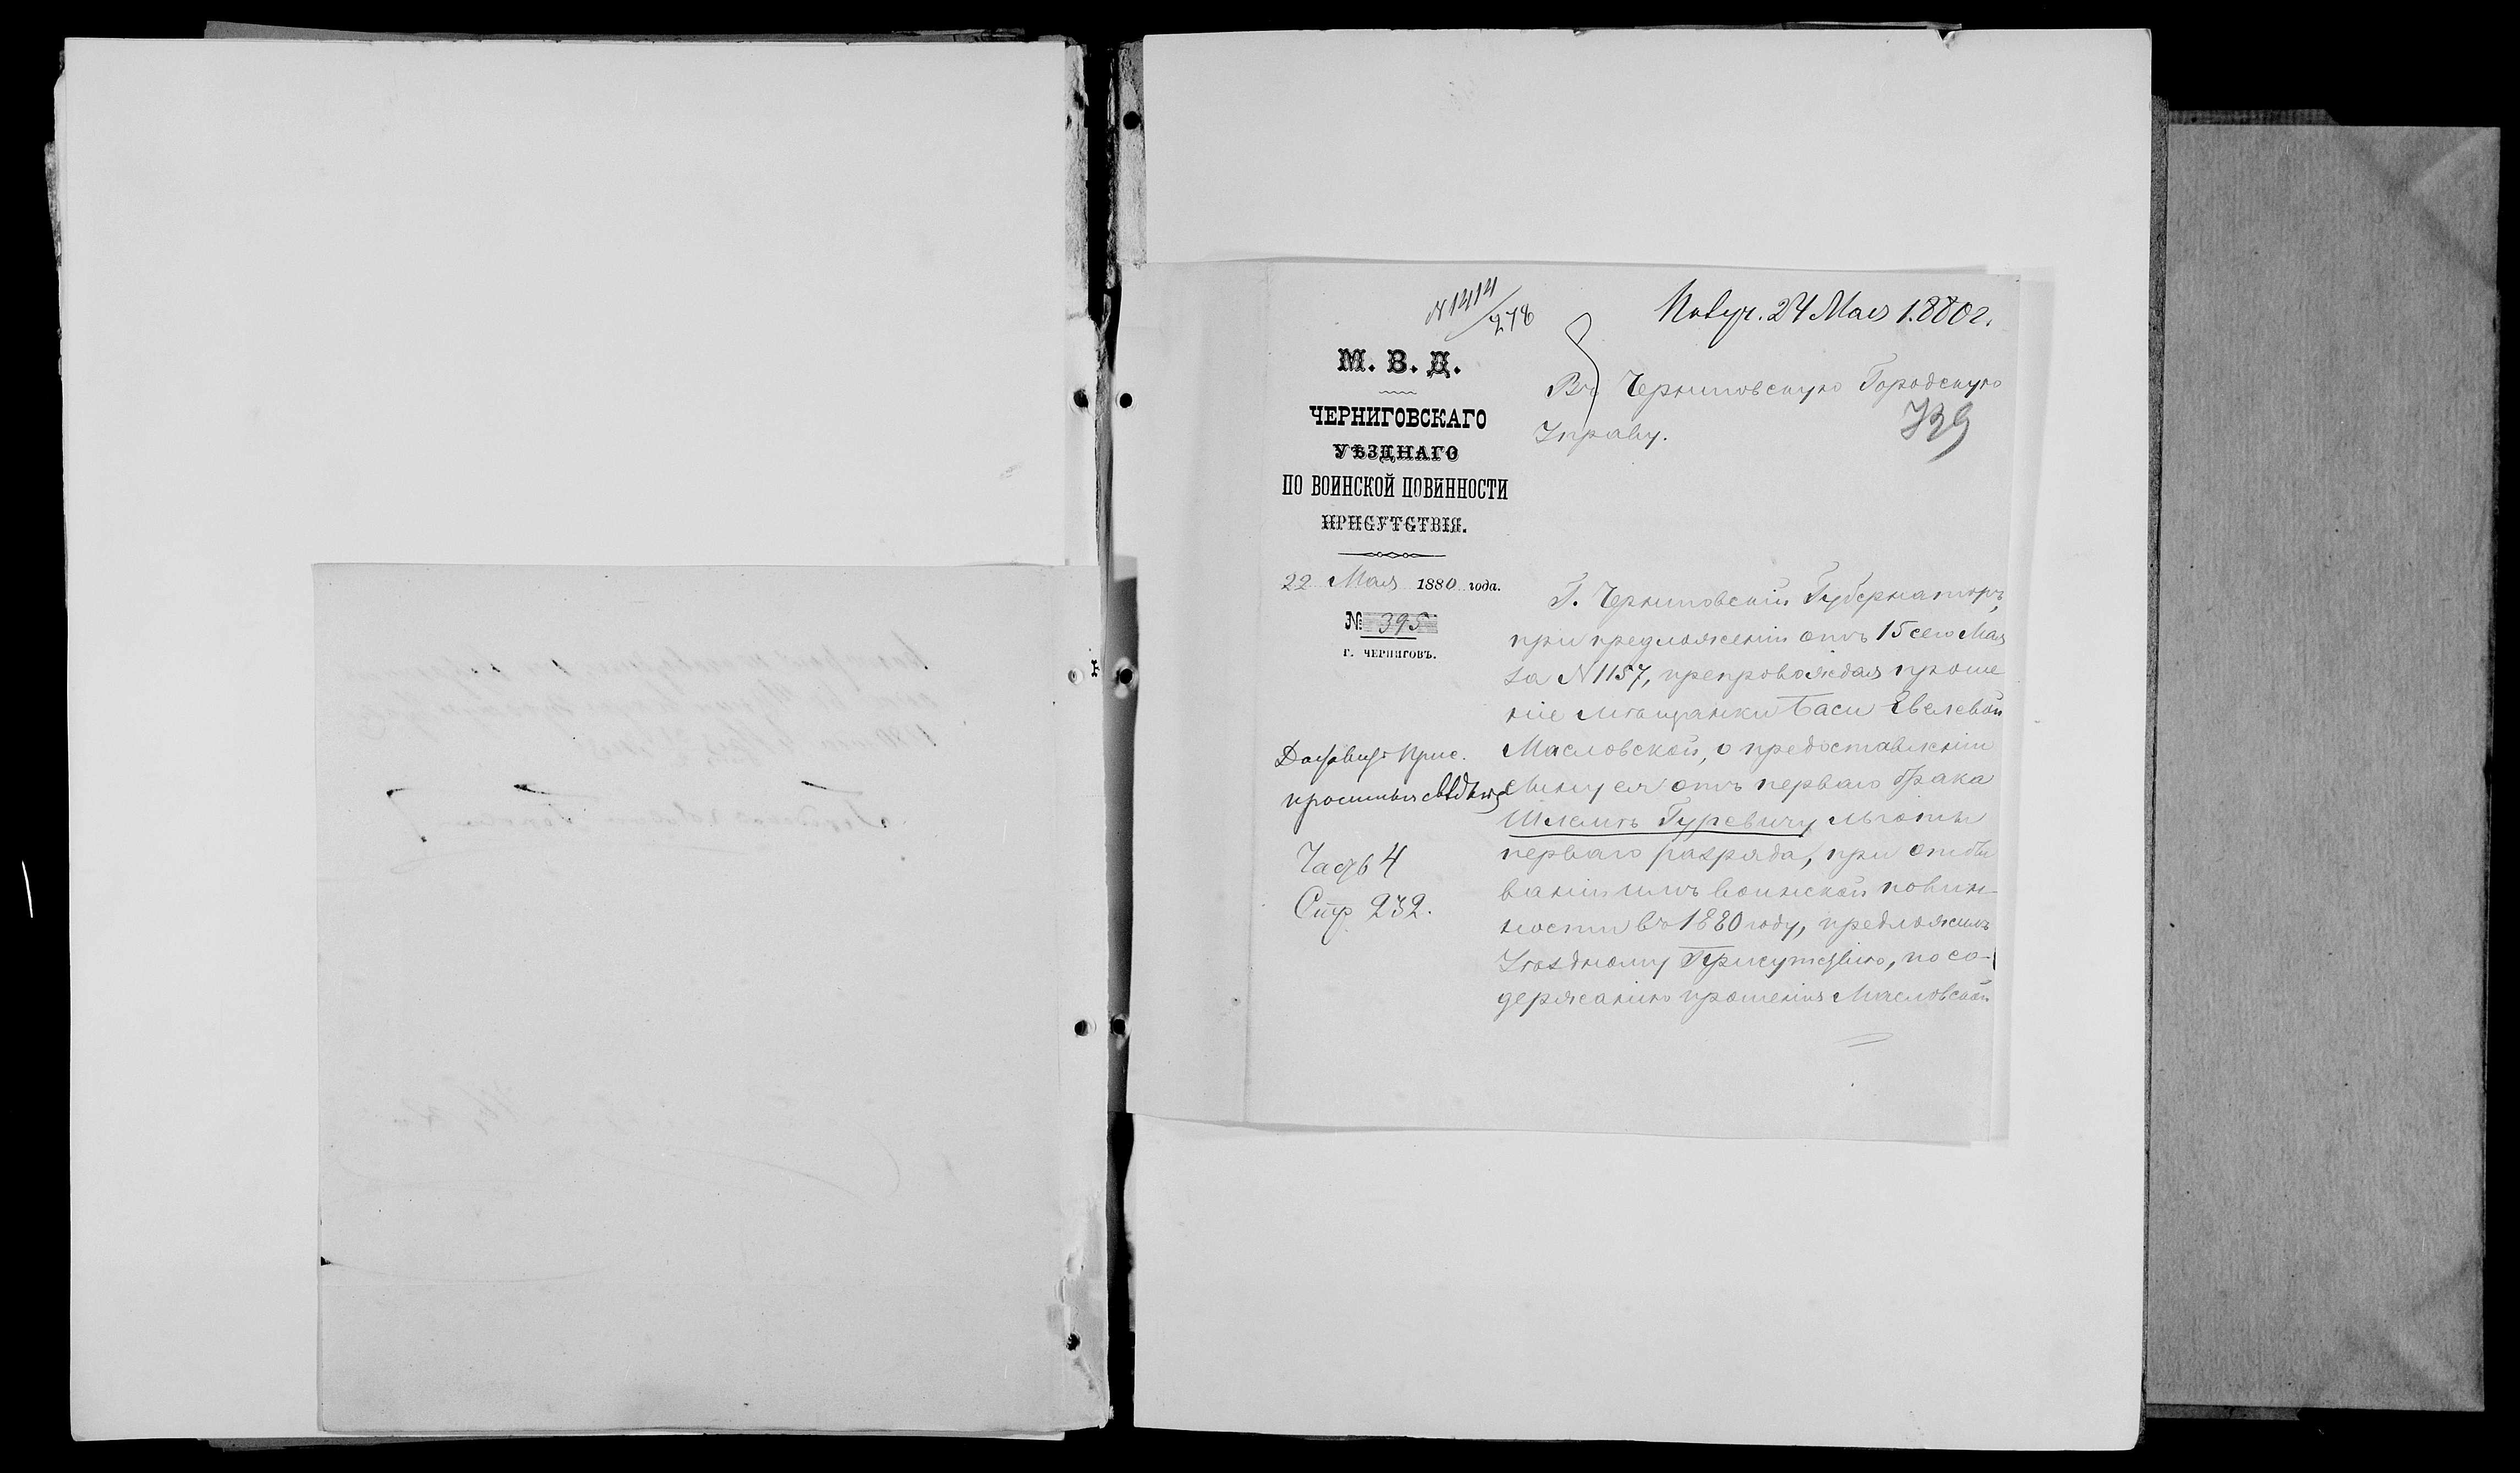 N 1414/278
Получ. 24 Мая 1880 г.
М. В. Д.
ЧЕРНИГОВСКАГО
УѢЗДНАГО
ПО ВОИНСКОЙ ПОВИННОСТИ
ПРИСУТСТВІЯ.
22 Мая 1880 года.
№ 395
Г. ЧЕРНИГОВЪ.
Доставить Прис.
просимыя свѣдѣнія
Часть 4
Стр 232.
Въ Черниговскую Городскую
Управу.
739
Г. Черниговскій Губернаторъ,
при предложеніи отъ 15 сего Мая
за N 1157, препровождая проше
ніе мѣщанки Баси Евелевой
Масловской, о предоставленіи
сыну ея отъ перваго брака
Шлемѣ Гуревичу льготы
перваго разряда, при отбы
ваніи имъ воинской повин-
ности въ 1880 году, предложилъ
Уѣздному Присутствію, по со-
держанію прошенія Масловской